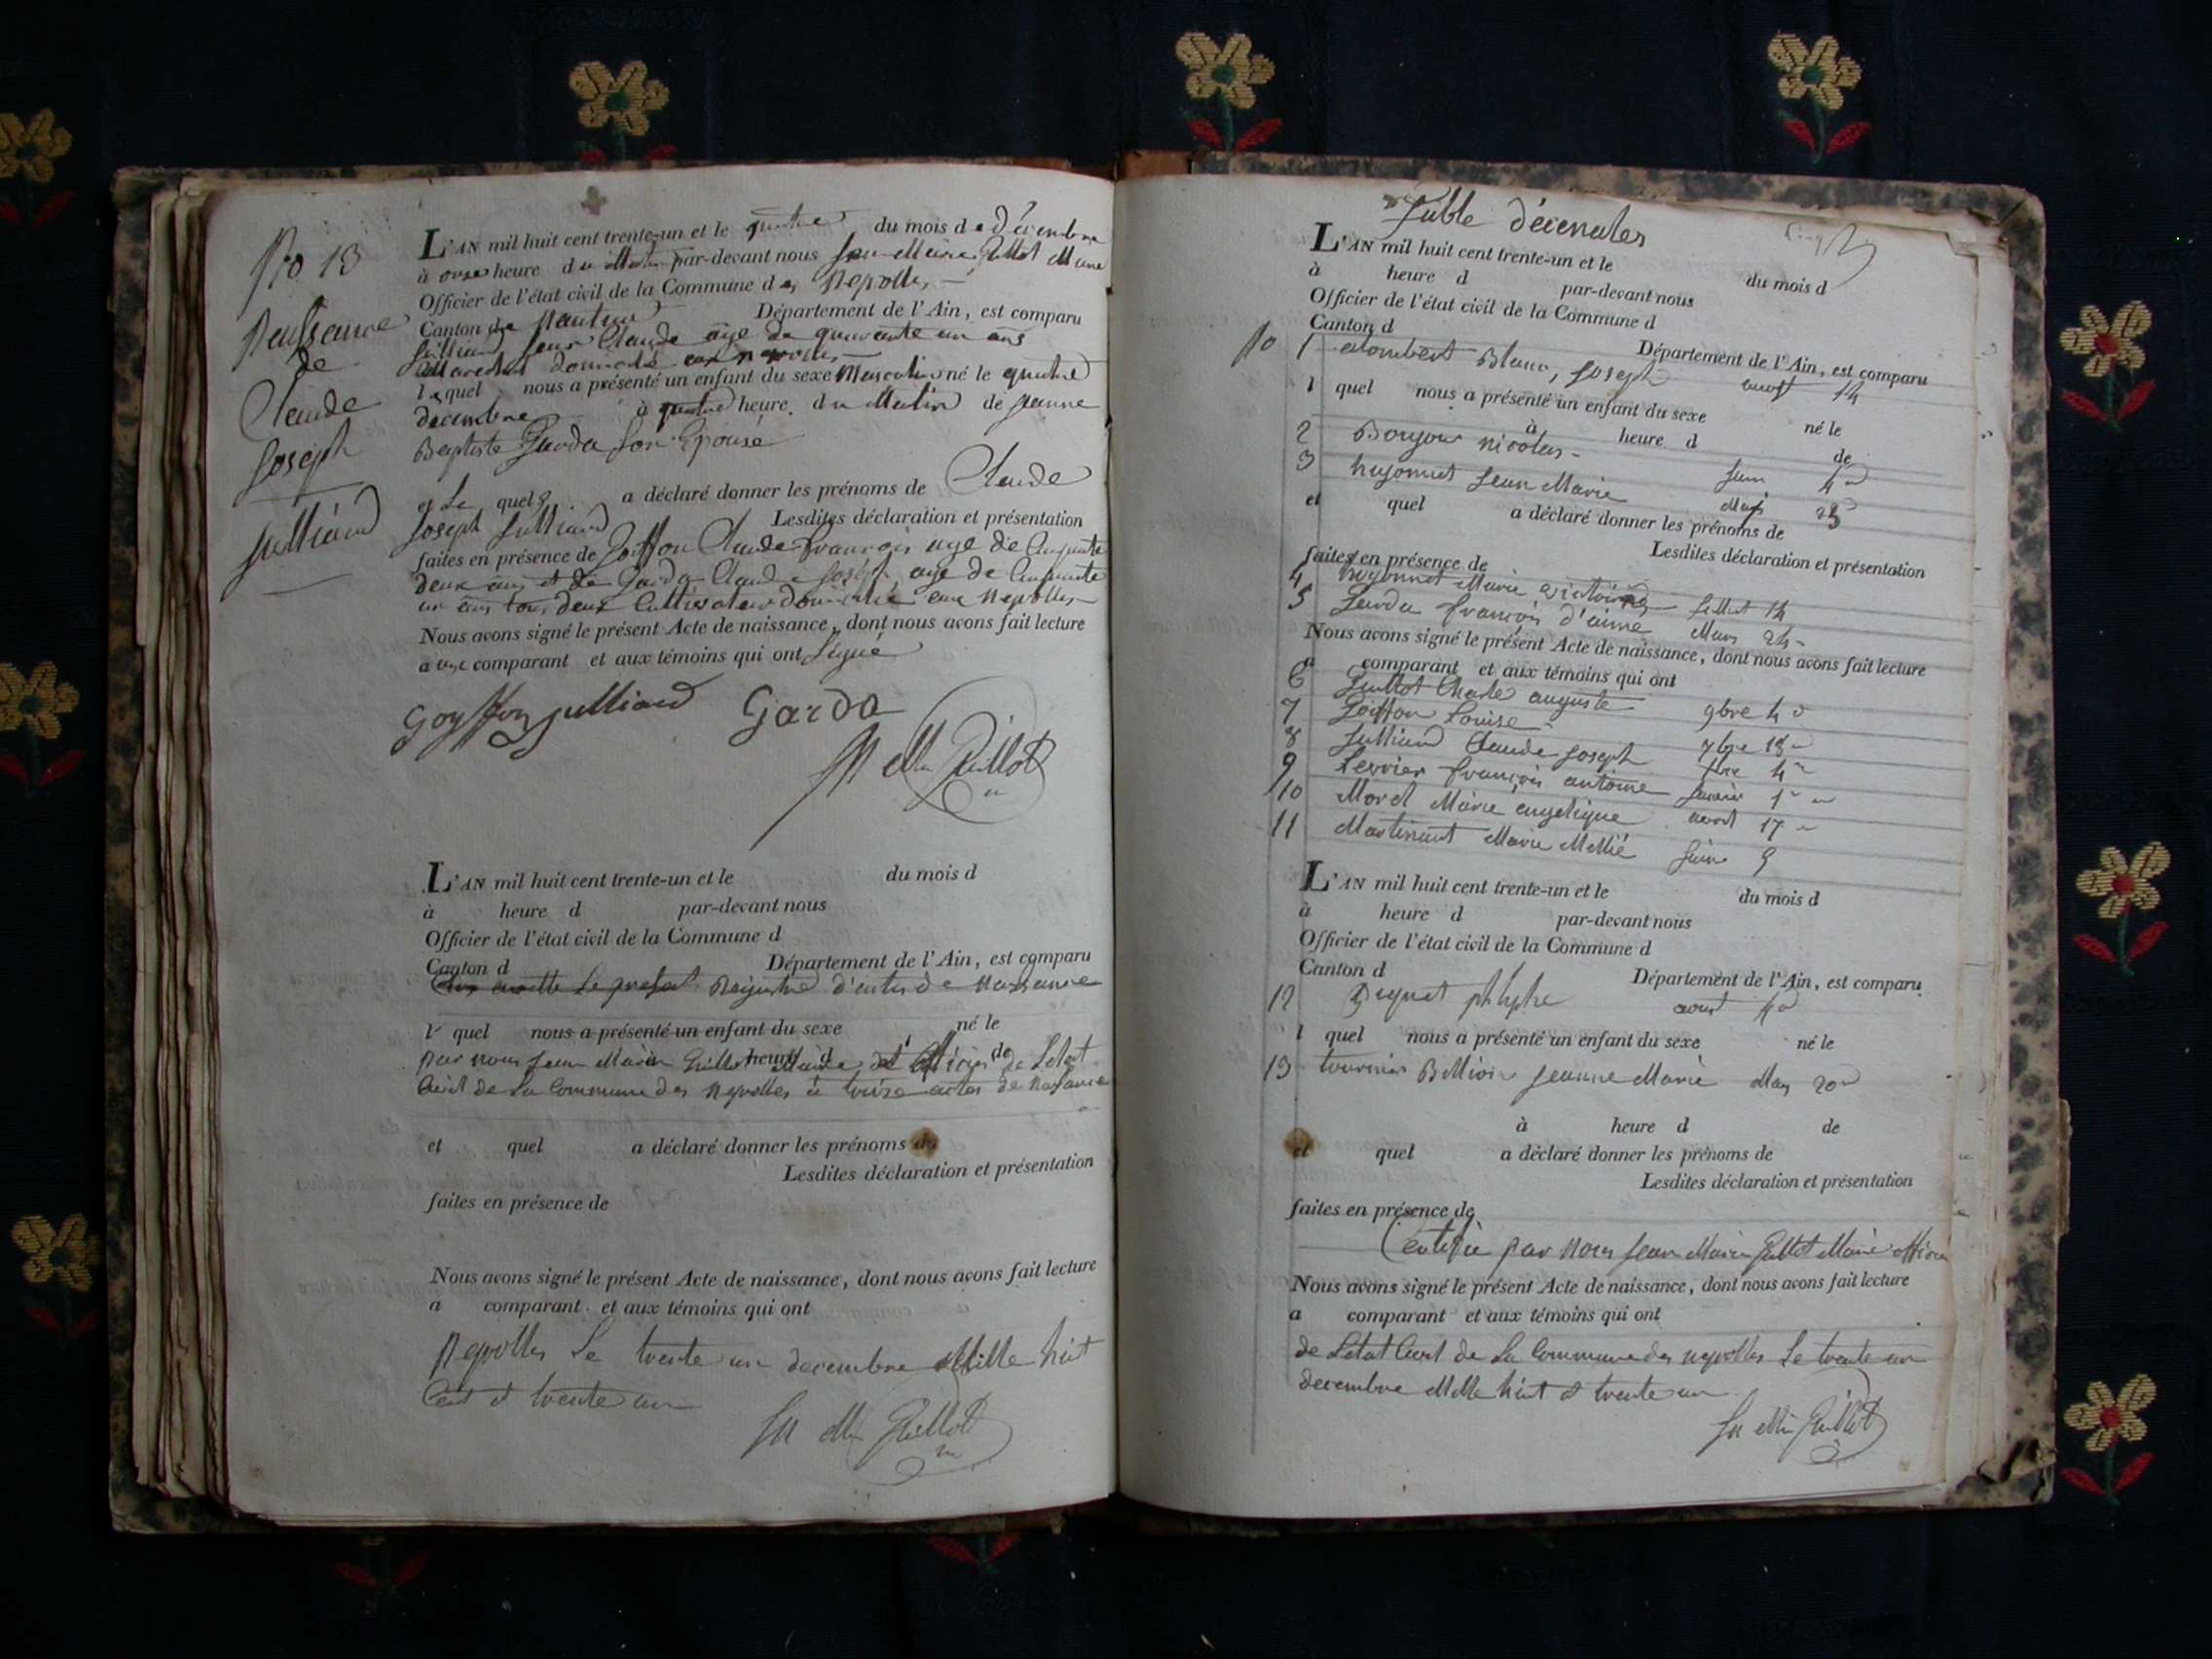 No 13
Naissance
de
Claude
Joseph
Julliard
L'AN mil huit cent trente-un et le quatre du mois de décembre
à onze heure du Matin par-devant nous Jean Marie Guillot Maire
Officier de l'état civil de la Commune des Neyrolles
Canton de Nantua Département de l'Ain, est comparu
Julliard Jean Claude âge de quarante un ans
Marechal domicilié aux neyrolles
lequel nous a présenté un enfant du sexe Masculin né le quatre
decembre à quatre heure. du Matin de jeanne
Baptiste Garda son Epouse
et Le quel a déclaré donner les prénoms de Claude
Joseph Julliard Lesdites déclaration et présentation
faites en présence de Goiffon Claude François age de Cinquante
deux ans et de Garda Claude Joseph age de Cinquante
un ans tous deux Cultivateur domicilié aux Neyrolles
Nous avons signé le présent Acte de naissance, dont nous avons fait lecture
a comparant et aux témoins qui ont Signé
Goyffon julliard Garda
Jn Mie Guillot
L'AN mil huit cent trente-un et le du mois d
à heure d par-devant nous
Officier de l'état civil de la Commune d
Canton d Département de l'Ain, est comparu
Le present Registre d'actes de Naissance
l quel nous a présenté un enfant du sexe né le
heure d de
par nous Jean Marie Guillot Maire et officier de Letat
Civil de La Commune des Neyrolles à treize actes de Naissance
et quel a déclaré donner les prénoms de
Lesdites déclaration et présentation
faites en présence de
Nous avons signé le présent Acte de naissance, dont nous avons fait lecture
a comparant et aux témoins qui ont
Neyrolles Le trente un decembre Mille huit
Cent et trente un
Jn Mie Guillot
Table décenales
L'AN mil huit cent trente-un et le du mois d
à heure d par-devant nous
Officier de l'état civil de la Commune d
Canton d Département de l'Ain, est comparu
No 1 alombert Blanc, Joseph aoust 14
l quel nous a présenté un enfant du sexe né le
à heure d de
2 Bonjour nicolas Juin 4
3 hugonnet Jean Marie Mars 25
et quel a déclaré donner les prénoms de
Lesdites déclaration et présentation
faites en présence de
4 hugonnet Marie victoire Juillet 14
5 Garda françois d'aime Mars 24
Nous avons signé le présent Acte de naissance, dont nous avons fait lecture
a comparant et aux témoins qui ont
6 Guillot Charle auguste 9bre 4
7 Goiffon Louise 7bre 18
8 Julliard Claude Joseph 4
9 françois antoine Janvier 1
10 Morel Marie angelique avril 17
11 Martinant Marie Juin 9
L'AN mil huit cent trente-un et le du mois d
à heure d par-devant nous
Officier de l'état civil de la Commune d
Canton d Département de l'Ain, est comparu
12 aoust
l quel nous a présenté un enfant du sexe né le
13 tournier Billion jeanne Marie May 20
à heure d de
et quel a déclaré donner les prénoms de
Lesdites déclaration et présentation
faites en présence de
Certifié par nous Jean Marie Guillot Maire officier
Nous avons signé le présent Acte de naissance, dont nous avons fait lecture
a comparant et aux témoins qui ont
de Letat Civil de La Commune des neyrolles Le trente un
decembre Mille huit et trente un
Jn Mie Guillot